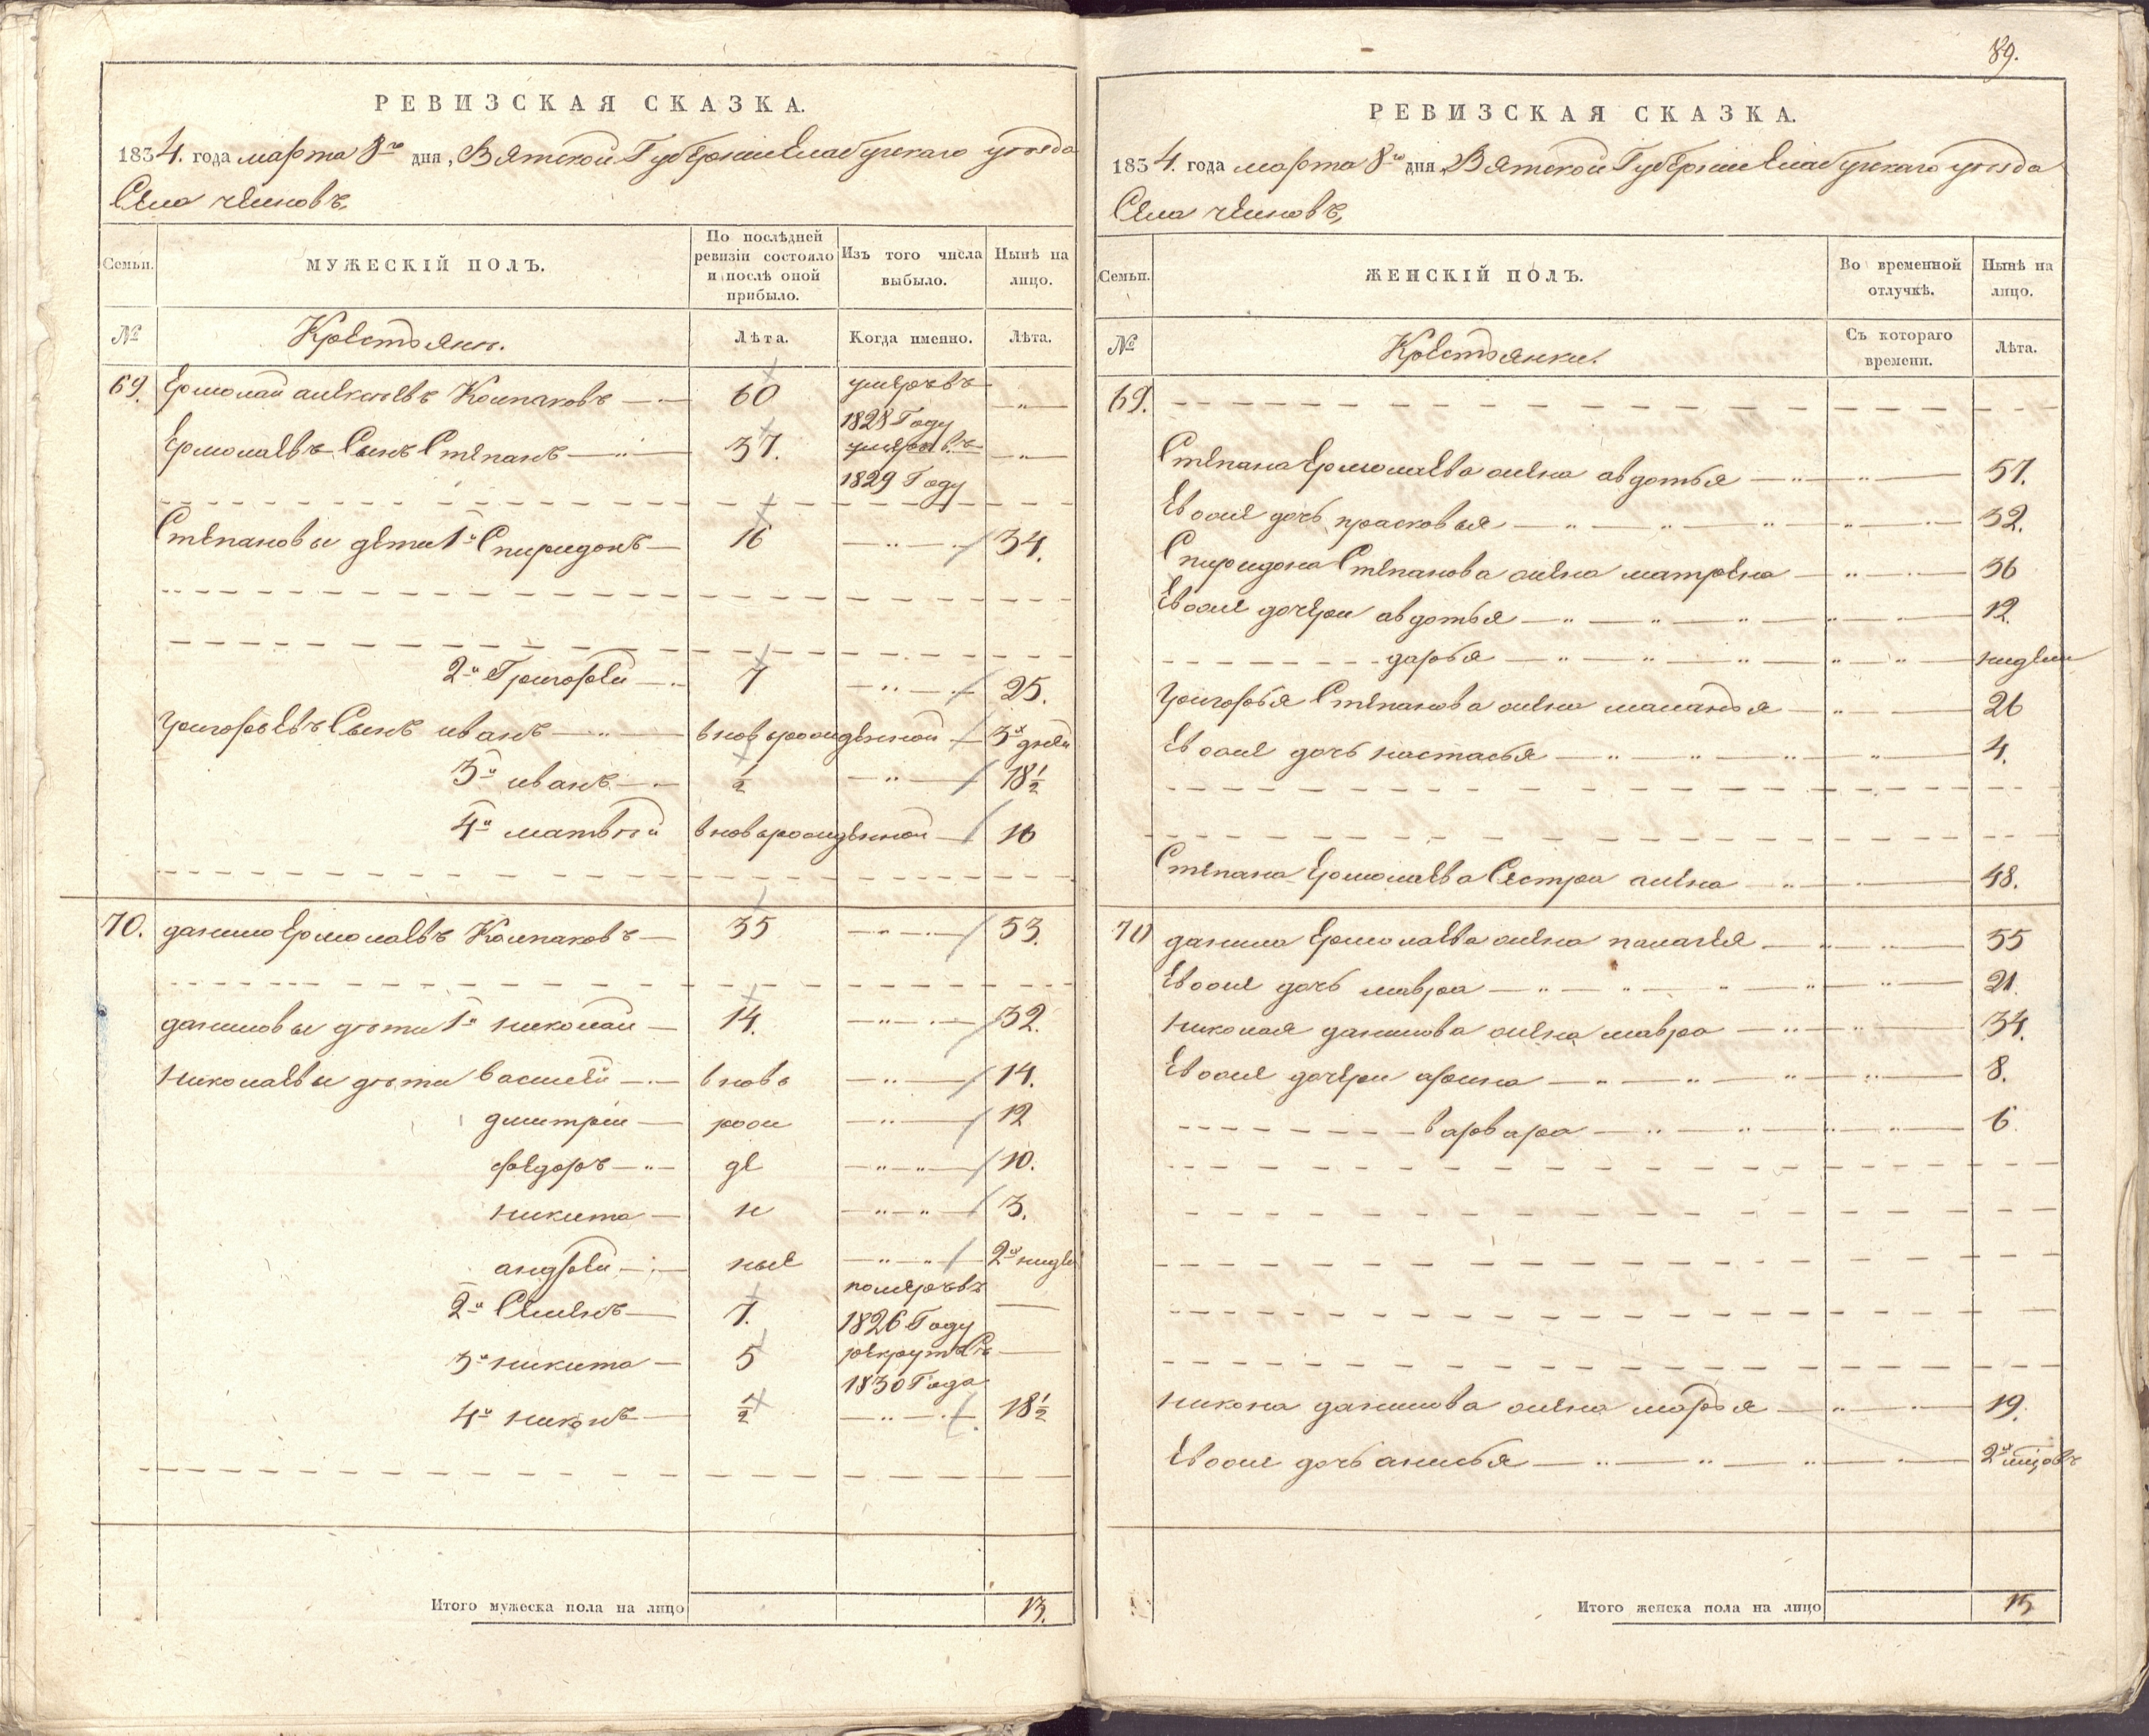 РЕВИЗСКАЯ СКАЗКА.
1834. года марта 8го дня, Вятской Губернии Елабужскаго уѣзда
Села челновъ,
Семьи.
МУЖЕСКІЙ ПОЛЪ.
По послѣдней ревизіи состояло и послѣ оной прибыло.
Изъ того числа выбыло.
Нынѣ на лицо.
№
Крестьянѣ.
Лѣта.
Когда именно.
Лѣта.
69. Ермолай алексѣевъ Колпаковъ 60 умеръ въ 1828 Году
Ермолаевъ Сынъ Степанъ 37. умеръ въ 1829 Году
Степановы дети 1й Спиридонъ 16 34.
2й Григорей 7 25.
Григорьевъ Сынъ иванъ вновьрожденной 3й дней
3й иванъ ½ 18½
4й матвѣй вновьрожденной 16
70. данило Ермолаевъ Колпаковъ 35 53.
даниловы дѣти 1й николай 14. 32.
Николаевы дѣти василей вновь 14.
дмитрей рож 12
федоръ де 10.
никита н 3.
андрей ные 2й нидели
2й Семенъ 7. померъ въ 1826 Году
3й никита 5 рекрутъ Съ 1830 Года
4й никонъ ½ 18½
Итого мужеска пола на лицо 13.
89.
РЕВИЗСКАЯ СКАЗКА.
1834. года марта 8го дня, Вятской Губернии Елабужскаго уѣзда
Села челновъ,
Семьи.
ЖЕНСКІЙ ПОЛЪ.
Во временной отлучкѣ.
Нынѣ на лицо.
№
Крестьянки.
Съ котораго времени.
Лѣта.
69.
Степана Ермолаева жена авдотья 57.
Евоже дочь прасковья 32.
Спиридона Степанова жена матрена 36
Евоже дочери авдотья 12.
дарья нидели
Григорья Степанова жена маланья 26
Евоже дочь настасья 4.
Степана Ермолаева Сестра анна 48.
70 данила Ермолаева жена палагея 55
Евоже дочь мавра 21.
николая данилова жена мавра 34.
Евоже дочери арина 8.
варвара 6
никона данилова жена марья 19.
Евоже дочь анисья 2й мцовъ
Итого женска пола на лицо 15